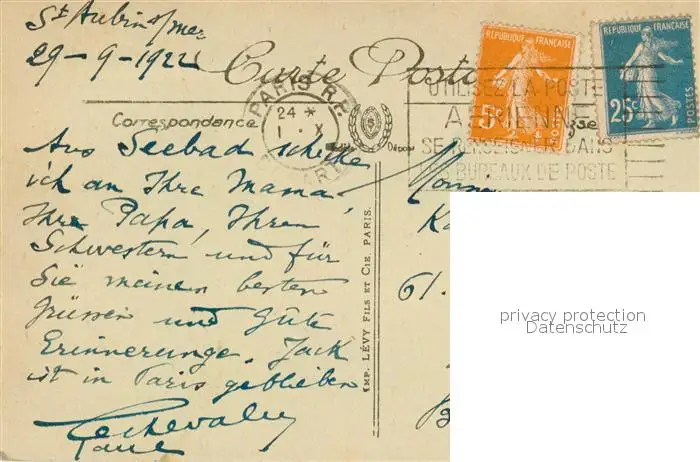 St Aubin s/mer
29-9-1922
Carte Postale
Correspondance
PARIS R.P.
24 *
1 . X
Modèle Déposé
REPUBLIQUE FRANÇAISE
5c
REPUBLIQUE FRANÇAISE
25c
POSTES
UTILISEZ LA POSTE
AERIENNE
SE RENSEIGNER DANS
LES BUREAUX DE POSTE
Aus Seebad schicke
ich an Ihre Mama,
Ihre Papa, Ihren
Schwestern und für
Sie meinen besten
Grüssen und Gute
Erinnerunge. Jack
ist in Paris geblieben
61.
IMP. LÉVY FILS ET CIE, PARIS.
privacy protection
Datenschutz